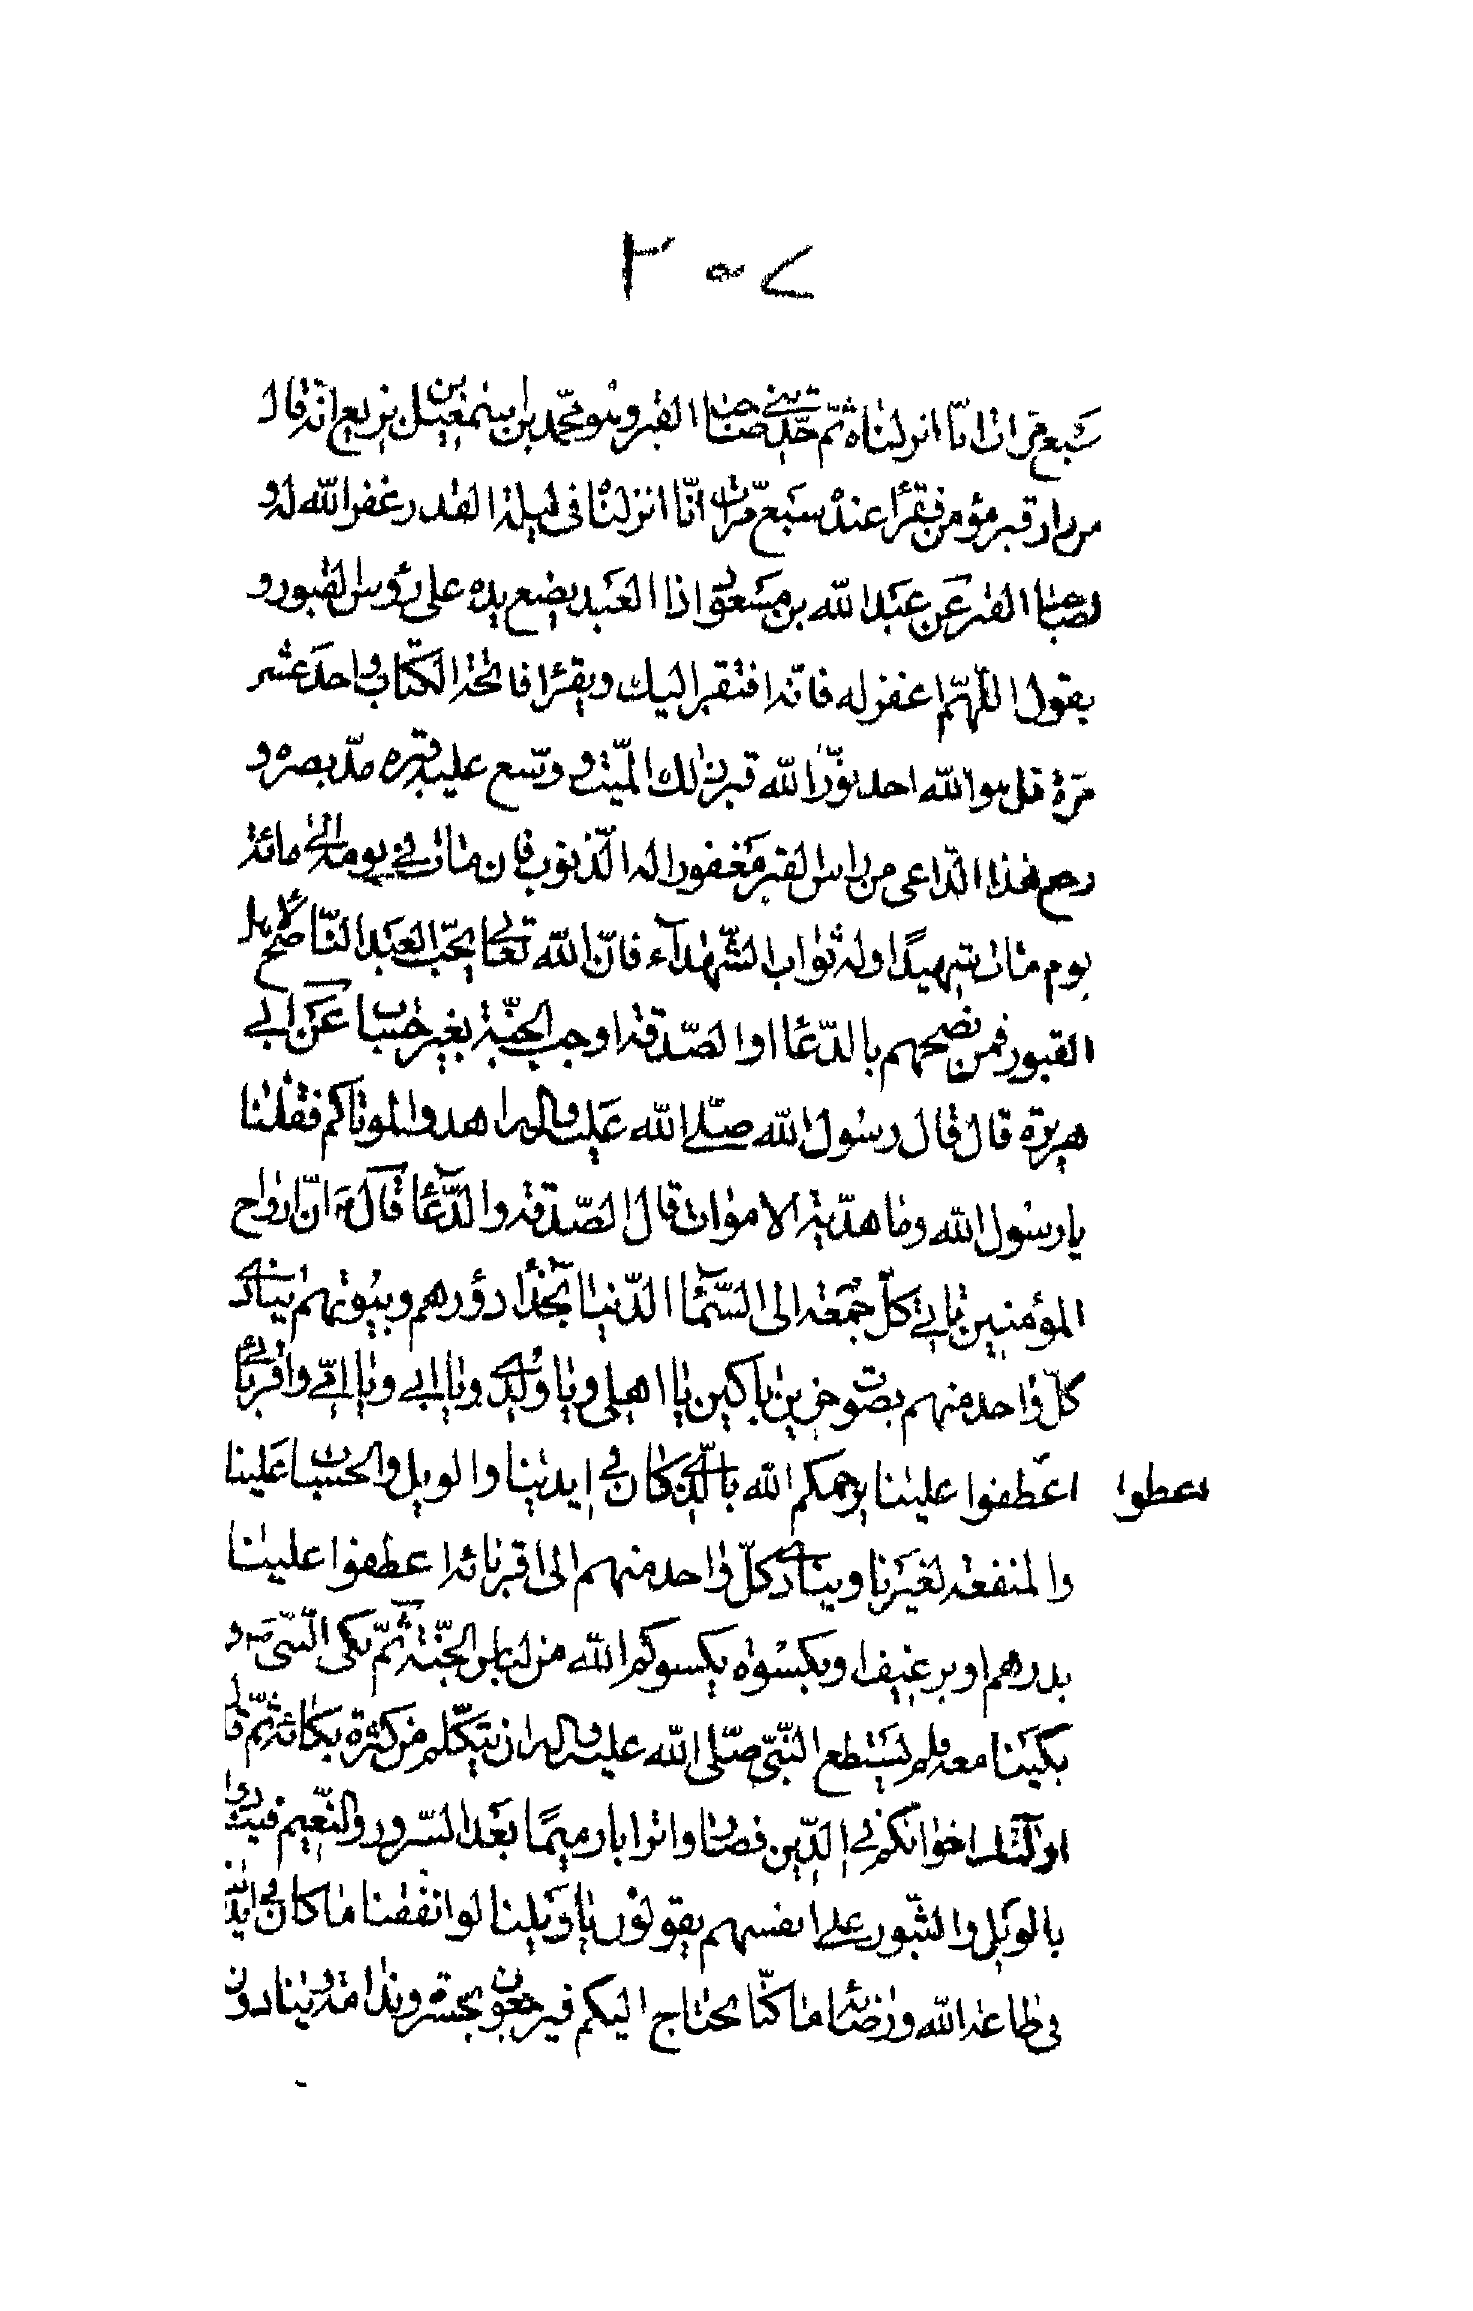 ٢٠٧
سبع مرات انّا انزلناه ثمّ حدّثني صاحب القبر وهو محمّد بن اسمعيل بن بزيع انّه قال
من زار قبر مؤمن فقرأ عنده سبع مرّات انّا انزلناه في ليلة القدر غفر الله له و
لصاحب القبر عن عبد الله بن مسعود اذا العبد يضع يده على رؤس القبور و
يقول اللّهمّ اغفر له فانّه افتقر اليك ويقرأ فاتحة الكتاب واحد عشر
مرّة قل هو الله احد نوّر الله قبر ذلك الميّت و وسّع عليه قبره مدّ بصره و
رجع هذا الدّاعي من رأس القبر مغفورا له الذّنوب فان مات في يومه الى مائة
يوم مات شهيدًا وله ثواب الشّهدآء فانّ الله تعالى يحبّ العبد النّاصح لاهل
القبور فمن نصحهم بالدّعا او الصّدقة اوجب الجنّة بغير حساب عن ابي
هريرة قال قال رسول الله صلّى الله عليه واله اهدوا لموتاكم فقلنا
يا رسول الله وما هديّة الاموات قال الصّدقة والدّعآء قال ص انّ ارواح
المؤمنين تاتي كلّ جمعة الى السّمآء الدّنيا بحذآء دورهم وبيوتهم ينادي
كلّ واحد منهم بصوت حزين باكين يا اهلي ويا ولدي ويا ابي ويا امّي واقربائي
اعطفوا علينا يرحمكم الله بالّذي كان في ايدينا والويل والحساب علينا
اعطوا
والمنفعة لغيرنا وينادي كلّ واحد منهم الى اقربائه اعطفوا علينا
بدرهم او برغيف او بكسوة يكسوكم الله من لباس الجنّة ثمّ بكى النّبيّ ص و
بكينا معه فلم يستطع النّبيّ صلّى الله عليه واله ان يتكلّم من كثرة بكائه ثمّ قال
اولئك اخوانكم في الدّين فصاروا ترابا رميمًا بعد السّرور والنّعيم فينادون
بالويل والثّبور على انفسهم يقولون يا ويلنا لو انفقنا ما كان في ايدينا
في طاعة الله ورضائه ما كنّا نحتاج اليكم فيرجعون بحسرة وندامة وينادون